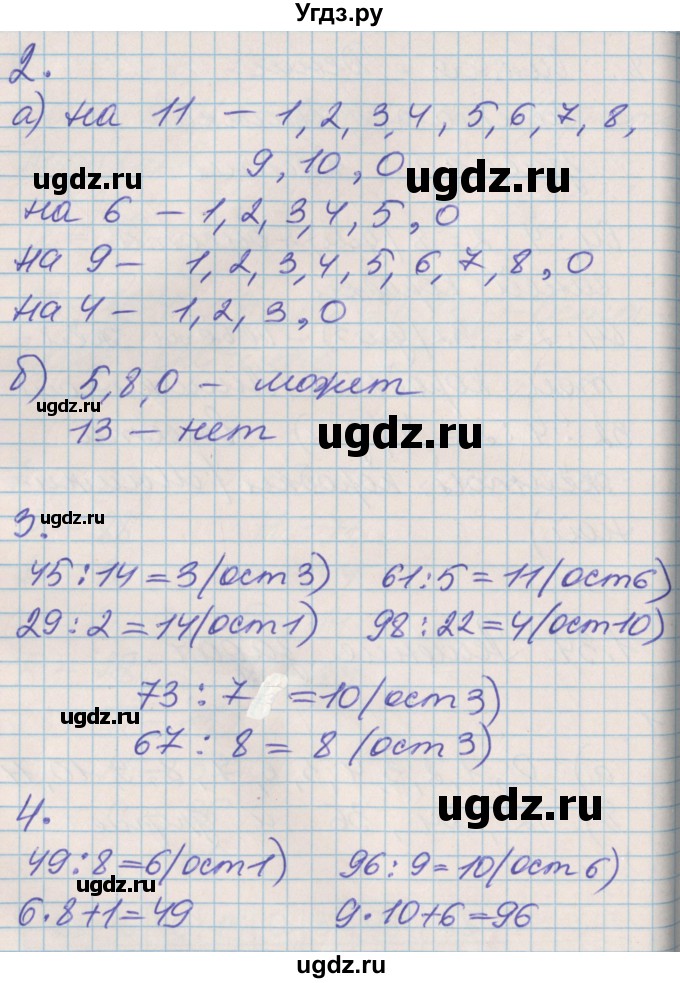 Угдз.ру
2.
а) на 11 – 1, 2, 3, 4, 5, 6, 7, 8,
9, 10, 0
ugdz.ru
ugdz.ru
на 6 – 1, 2, 3, 4, 5, 0
на 9 – 1, 2, 3, 4, 5, 6, 7, 8, 0
на 4 – 1, 2, 3, 0
б) 5, 8, 0 – может
ugdz.ru
13 – нет
ugdz.ru
3.
ugdz.ru
45 : 14 = 3 (ост 3) 61 : 5 = 11 (ост 6)
29 : 2 = 14 (ост 1) 98 : 22 = 4 (ост 10)
73 : 7 = 10 (ост 3)
ugdz.ru
67 : 8 = 8 (ост 3)
4.
ugdz.ru
49 : 8 = 6 (ост 1) 96 : 9 = 10 (ост 6)
ugdz.ru
6 · 8 + 1 = 49 9 · 10 + 6 = 96
ugdz.ru